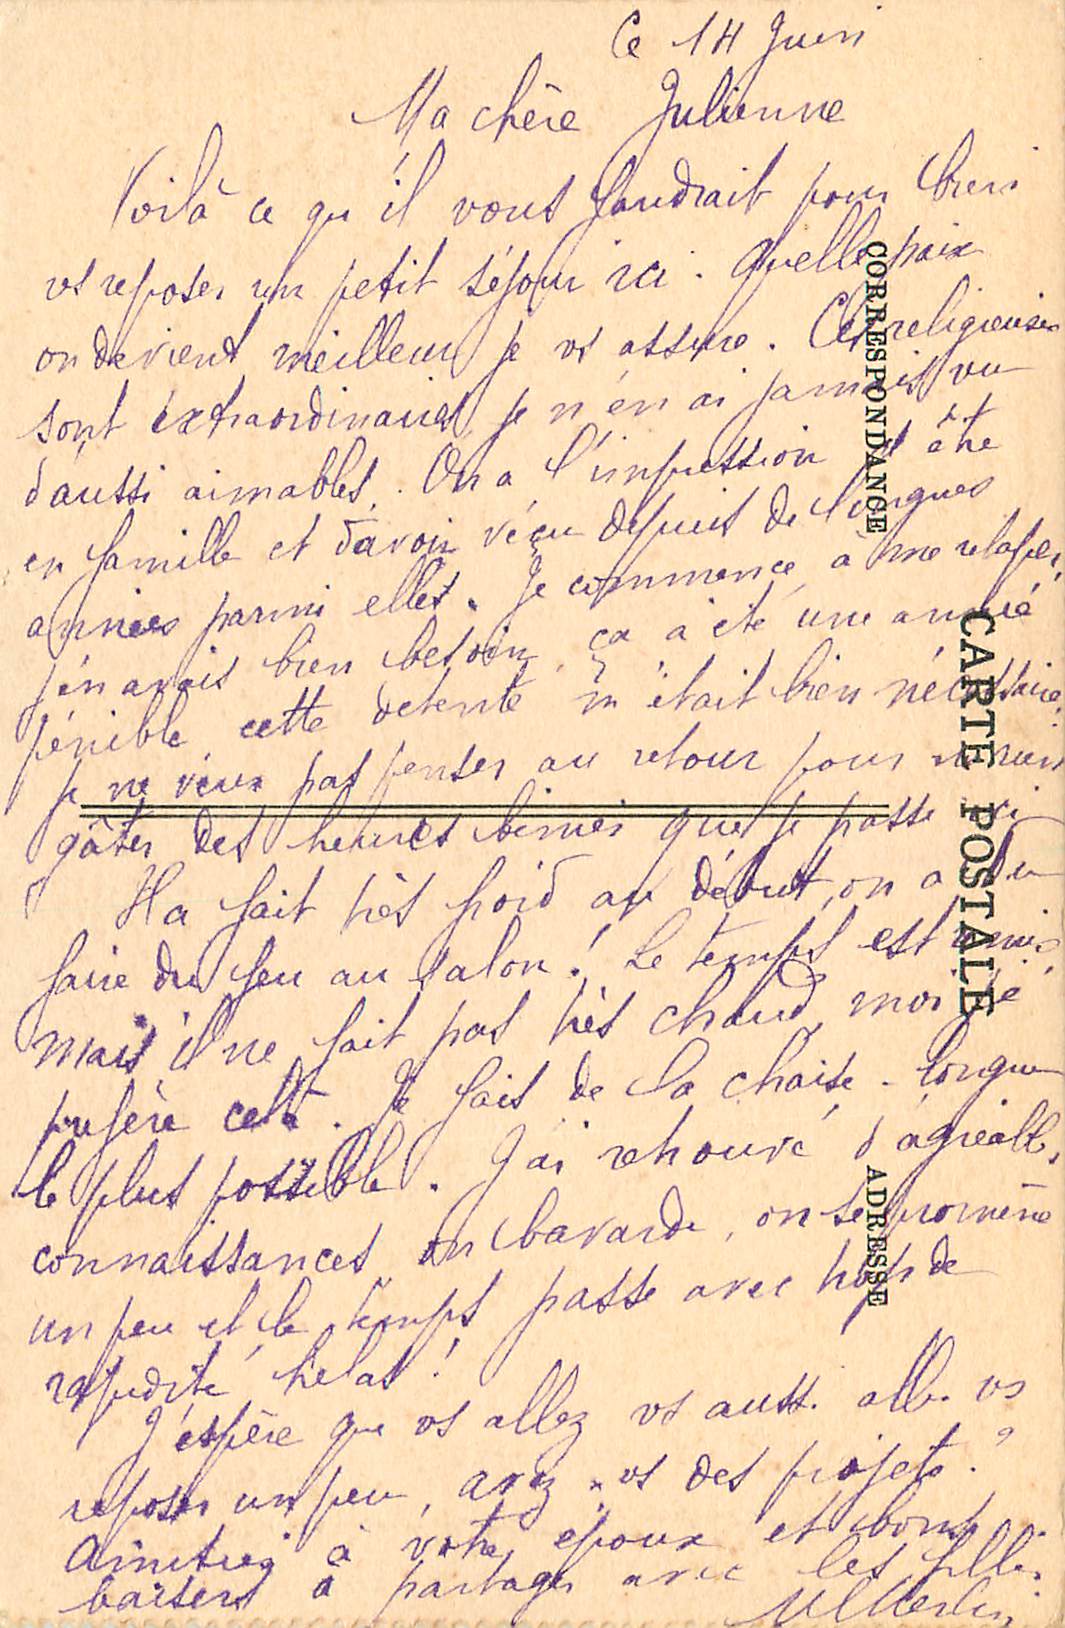 Ce 14 Juin
Ma chère Julienne
Voilà ce qu'il vous faudrait pour bien
vs reposer un petit séjour ici. Quelle paix
on devient meilleur je vs assure. Ces religieuses
sont extraordinaires, je n'en ai jamais vu
d'aussi aimables. On a l'impression d'être
en famille et d'avoir vécu depuis de longues
années parmi elles. Je commence à me retaper,
j'en avais bien besoin, ça a été une année
pénible, cette détente m'était bien nécessaire.
Je ne veux pas penser au retour pour ne rien
gâter des heures bénies que je passe ici
Il a fait très froid au début, on a du
faire du feu au salon! Le temps est remis
mais il ne fait pas très chaud, moi je
préfère cela. Je fais de la chaise-longue
le plus possible. J'ai retrouvé d'agréables
connaissances, on bavarde, on se promène
un peu et le temps passe avec trop de
rapidité, hélas!
J'espère que vs allez vs aussi aller vs
reposer un peu, avez-vs des projets?
Amitiés à votre époux et bons
baisers à partager avec les filles.
M Merlin
CORRESPONDANCE
CARTE POSTALE
ADRESSE